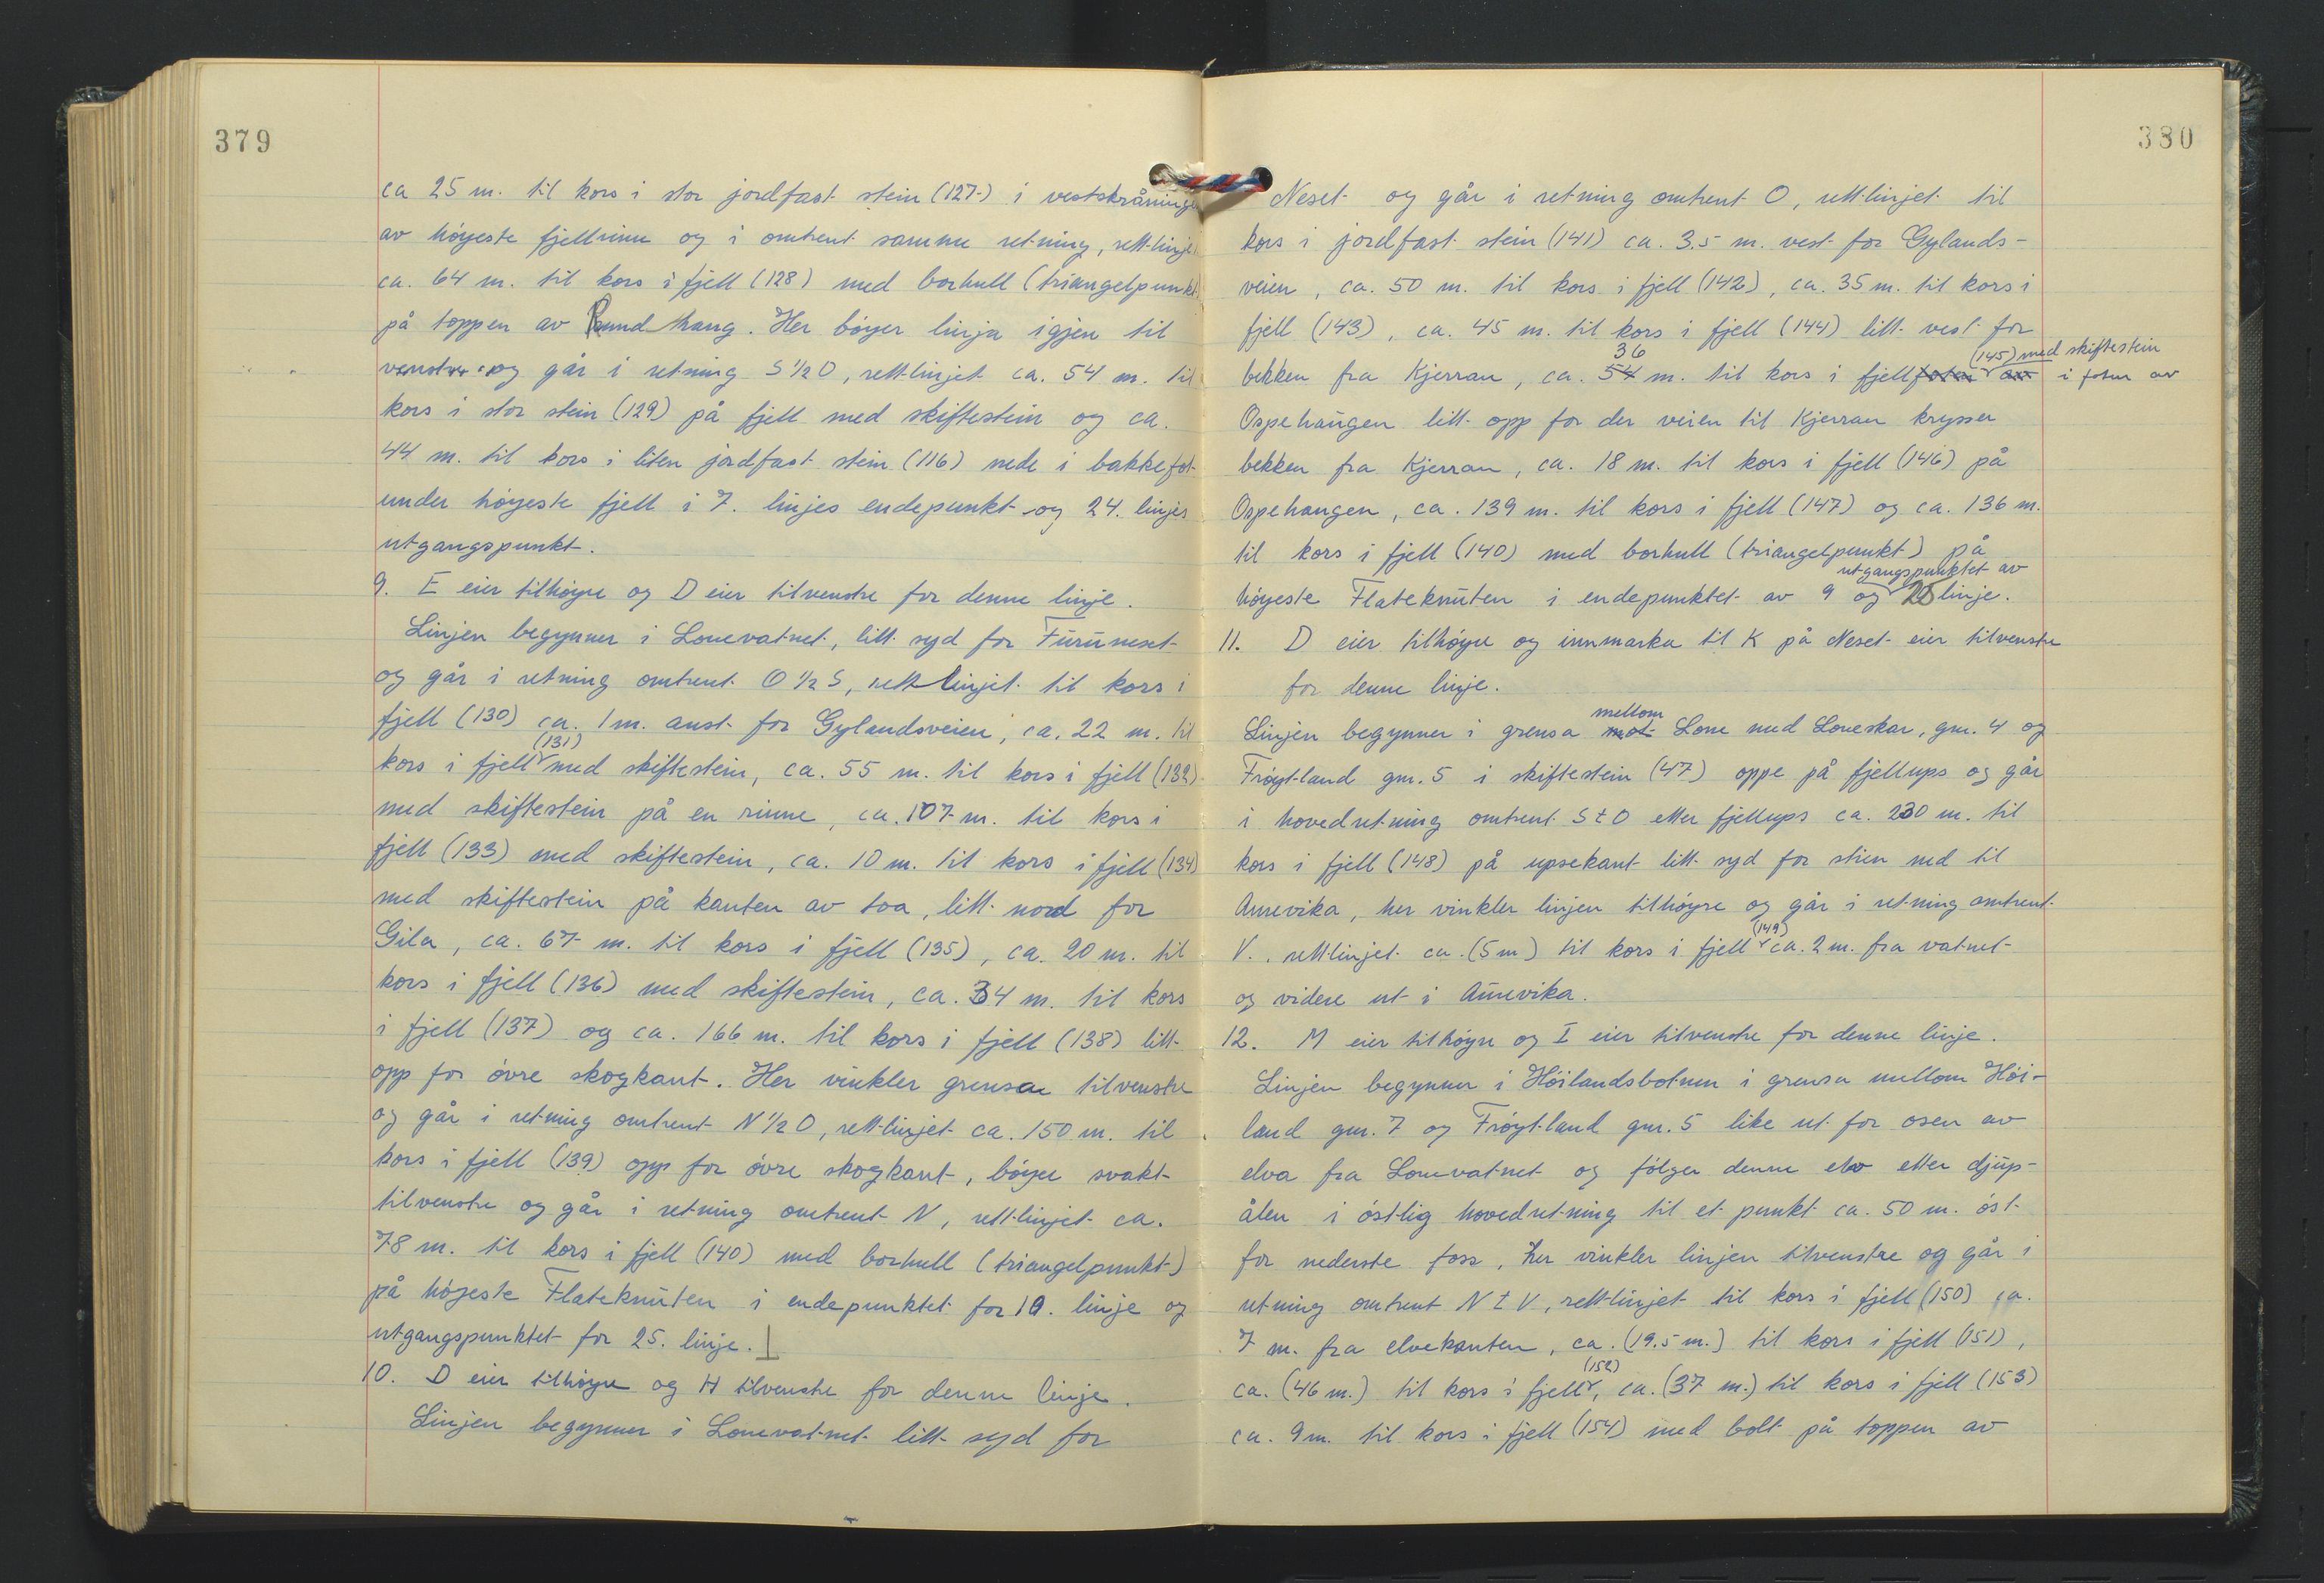 379
ca 25 m. til kors i stor jordfast stein (127) i vestskråninge
av höyeste fjellrinne og i omtrent samme retning, rettlinje
ca. 64 m. til kors i fjell (128) med borhull (triangelpunkt
på toppen av Rundhaug. Her böyer linja igjen til
venstre og går i retning S ½ O, rettlinjet ca. 54 m. til
kors i stor stein (129) på fjell med skiftestein og ca.
44 m. til kors i liten jordfast stein (116) nede i bakkefot
under höyeste fjell i 7. linjes endepunkt og 24. linjes
utgangspunkt.
9. E eier tilhöyre og D eier tilvenstre for denne linje.
Linjen begynner i Lonevatnet, litt syd for Furuneset
og går i retning omtrent O ½ S, rettlinjet til kors i
fjell (130) ca. 1 m. aust for Gylandsveien, ca. 22 m. til
kors i fjell (131) med skiftestein, ca. 55 m. til kors i fjell (132)
med skiftestein på en rinne, ca. 107 m. til kors i
fjell (133) med skiftestein, ca. 10 m. til kors i fjell (134)
med skiftestein på kanten av toa, litt nord for
Gila, ca. 67 m. til kors i fjell (135), ca. 20 m. til
kors i fjell (136) med skiftestein, ca. 34 m. til kors
i fjell (137) og ca. 166 m. til kors i fjell (138) litt
opp for övre skogkant. Her vinkler grensa tilvenstre
og går i retning omtrent N ½ O, rettlinjet ca. 150 m. til
kors i fjell (139) opp for övre skogkant, böyer svakt
tilvenstre og går i retning omtrent N, rettlinjet ca.
78 m. til kors i fjell (140) med borhull (triangelpunkt)
på höyeste Flateknuten i endepunktet for 10. linje og
utgangspunktet for 25. linje.
10. D eier tilhöyre og H tilvenstre for denne linje.
Linjen begynner i Lonevatnet litt syd for
380
Neset og går i retning omtrent O, rettlinjet til
kors i jordfast stein (141) ca. 3.5 m. vest for Gylands-
veien, ca. 50 m. til kors i fjell (142), ca. 35 m. til kors i
fjell (143), ca. 45 m. til kors i fjell (144) litt vest for
bekken fra Kjerran, ca. 54 36 m. til kors i fjell foten av (145) med skiftestein i foten av
Ospehaugen litt opp for der veien til Kjerran krysser
bekken fra Kjerran, ca. 18 m. til kors i fjell (146) på
Ospehaugen, ca. 139 m. til kors i fjell (147) og ca. 136 m.
til kors i fjell (140) med borhull (triangelpunkt) på
höyeste Flateknuten i endepunktet av 9 og utgangspunktet av 25 linje.
11. D eier tilhöyre og innmarka til K på Neset eier tilvenstre
for denne linje.
Linjen begynner i grensa mot mellom Lone med Loneskar, gnr. 4 og
Fröytland gnr. 5 i skiftestein (47) oppe på fjellups og går
i hovedretning omtrent S t O etter fjellups ca. 230 m. til
kors i fjell (148) på upsekant litt syd for stien ned til
Aurevika, her vinkler linjen tilhöyre og går i retning omtrent
V., rettlinjet ca. (5 m) til kors i fjell (149) ca. 2 m. fra vatnet
og videre ut i Aurevika.
12. M eier tilhöyre og I eier tilvenstre for denne linje.
Linjen begynner i Höilandsbotnen i grensa mellom Höi-
land gnr. 7 og Fröytland gnr. 5 like ut for osen av
elva fra Lonevatnet og fölger denne elv etter djup-
ålen i östlig hovedretning til et punkt ca. 50 m. öst
for nederste foss, her vinkler linjen tilvenstre og går i
retning omtrent N t V, rettlinjet til kors i fjell (150) ca.
7 m. fra elvekanten, ca. (19.5 m.) til kors i fjell (151),
ca. (46 m.) til kors i fjell (152), ca. (37 m.) til kors i fjell (153)
ca. 9 m. til kors i fjell (154) med bolt på toppen av